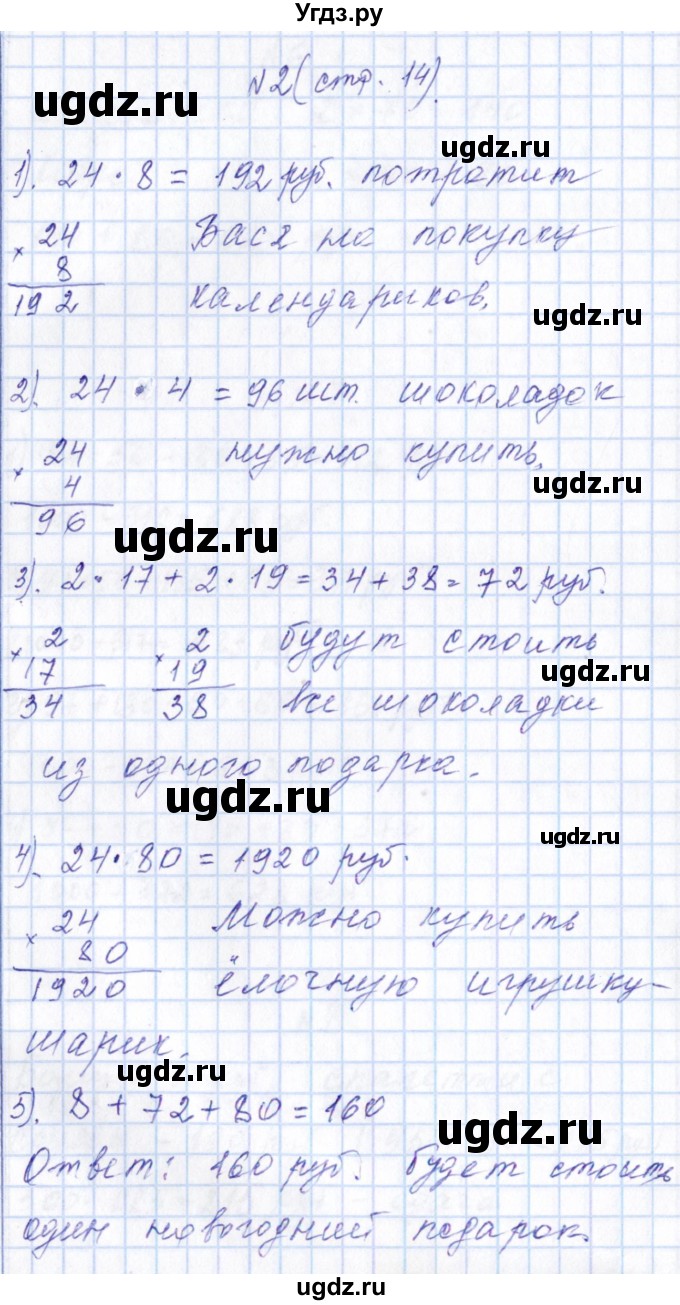 Угдз.ру
№2 (стр. 14).
ugdz.ru
ugdz.ru
1). 24 · 8 = 192 руб. потратит
× 24 Вася на покупку
8 календариков.
192
ugdz.ru
2). 24 · 4 = 96 шт. шоколадок
× 24 нужно купить.
4
ugdz.ru
96
ugdz.ru
3). 2 · 17 + 2 · 19 = 34 + 38 = 72 руб.
× 2 × 2 будут стоить
17 19
ugdz.ru
34 38 все шоколадки
из одного подарка.
ugdz.ru
4). 24 · 80 = 1920 руб.
ugdz.ru
× 24 Можно купить
80
1920 ёлочную игрушку-
шарик.
ugdz.ru
5). 8 + 72 + 80 = 160
ugdz.ru
Ответ: 160 руб. будет стоить
один новогодний подарок.
ugdz.ru